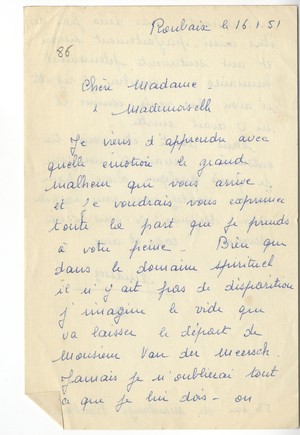 Roubaix le 16.1.51
86
Chère Madame,
& Mademoiselle
Je viens d'apprendre avec
quelle émotion le grand
malheur qui vous arrive
et je voudrais vous exprimer
toute la part que je prends
à votre peine - Bien que
dans le domaine spirituel
il n'y ait pas de disparition
j'imagine le vide que
va laisser le départ de
Monsieur Van der Meersch.
Jamais je n'oublierai tout
ce que je lui dois - on